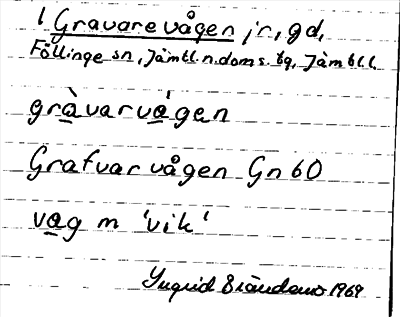 1 Gravarevågen jr, gd,
Föllinge sn, Jämtl. n. doms. tg, Jämtl l.
gràvarvágen
Grafvarvågen Gn 60
vag m 'vik'
Ingrid 1969